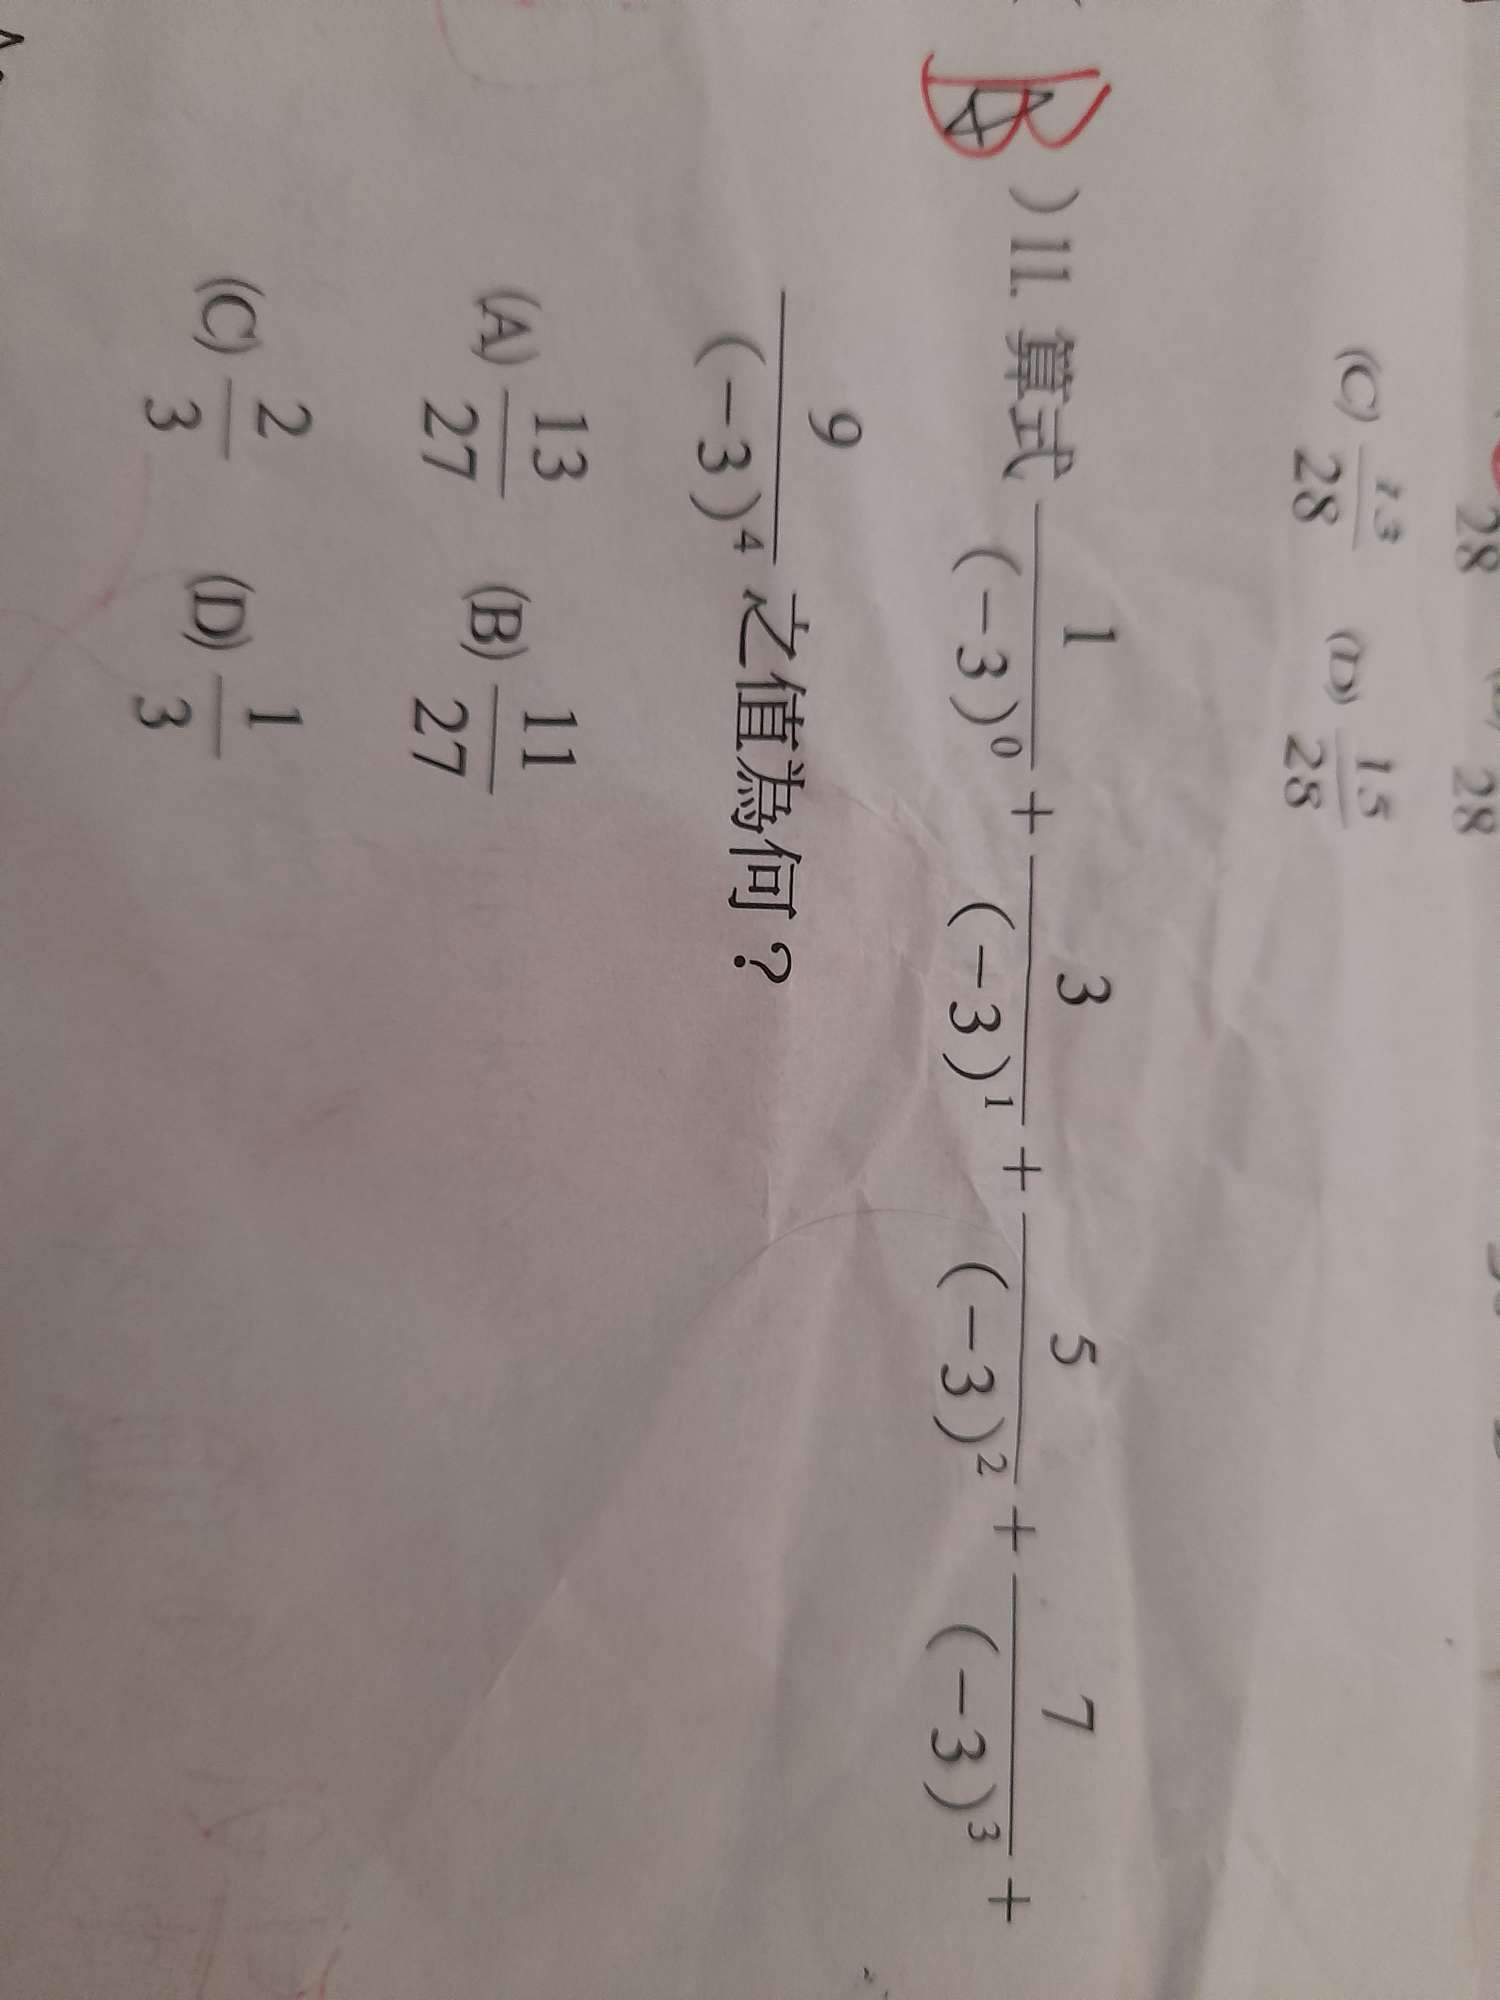 (C) 13/28 (D) 15/28
B ) 11. 算式 1/(-3)⁰ + 3/(-3)¹ + 5/(-3)² + 7/(-3)³ +
9/(-3)⁴ 之值為何？
(A) 13/27 (B) 11/27
(C) 2/3 (D) 1/3